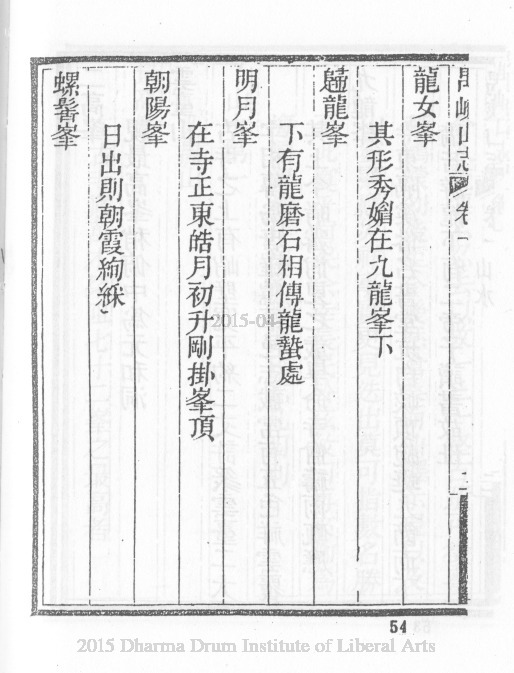 禺峽山志 卷一
二
龍女峯
其形秀媚在九龍峯下
歸龍峯
下有龍磨石相傳龍蟄處
明月峯
在寺正東皓月初升剛掛峯頂
朝陽峯
日出則朝霞絢綵
螺髻峯
54
2015-04
2015 Dharma Drum Institute of Liberal Arts